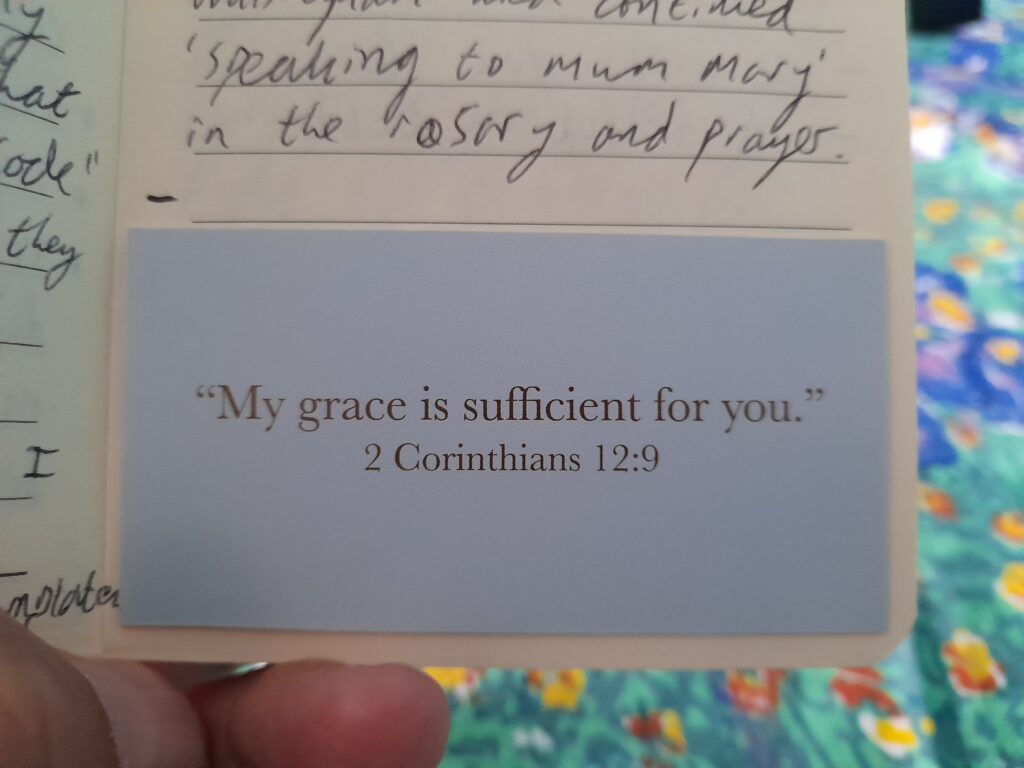 ly
hat
ode"
they
I
continued
'speaking to mum Mary'
in the rosary and prayer.
-
“My grace is sufficient for you.”
2 Corinthians 12:9